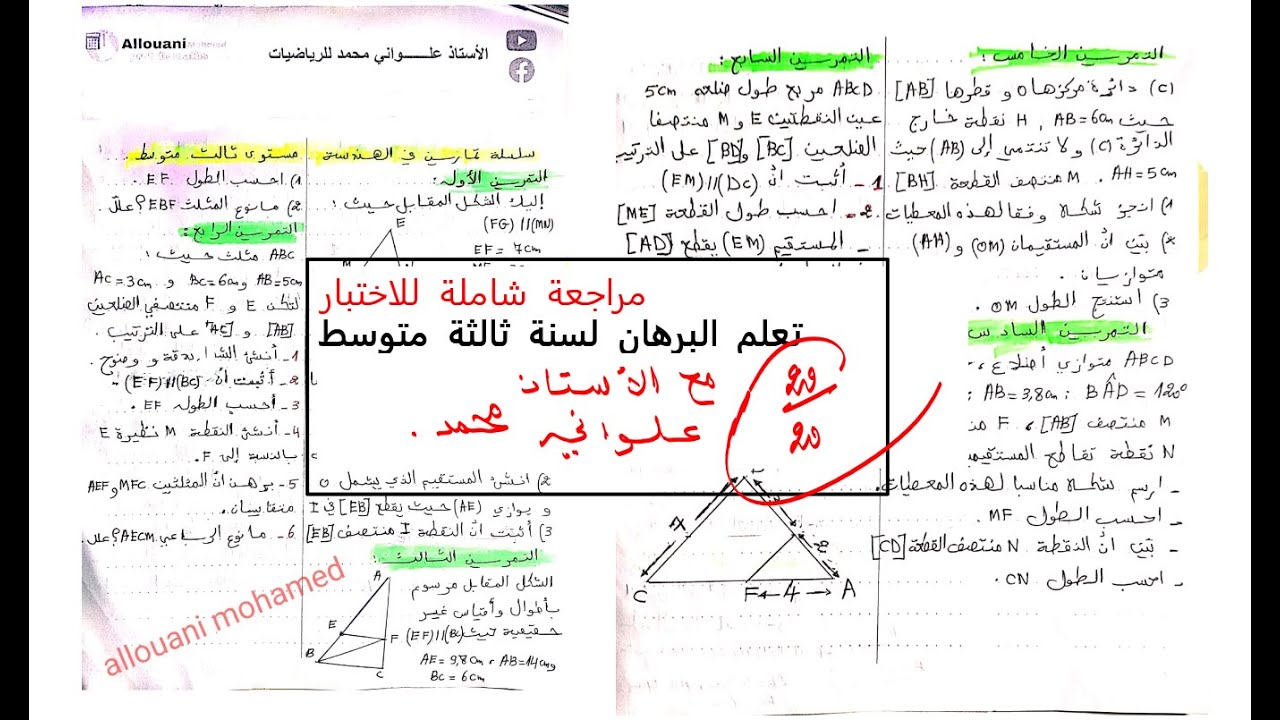 Allouani Mohamed
الأستاذ علـــواني محمد للرياضيات
سلسلة تمارين في الهندسة مستوى ثالث متوسط
التمرين الأول:
إليك الشكل المقابل حيث:
(FG) // (MN)
E
EF = 7cm
2) انشئ المستقيم الذي يشمل O
و يوازي (AE) حيث يقطع [EB] في I
3) أثبت أنّ النقطة I منتصف [EB]
التمرين الثالث:
الشكل المقابل مرسوم
بأطوال وأقياس غير
حقيقية حيث (EF)//(BC)
AE = 9,8cm, AB=14cm و
BC = 6cm
A
E
F
B
C
1) احسب الطول EF.
2) ما نوع المثلث EBF؟ علل
التمرين الرابع:
ABC مثلث حيث:
AB=5cm و BC=6cm و AC=3cm
لتكن E و F منتصفي الضلعين
[AB] و [AC] على الترتيب.
1- أنشئ الشكل بدقة و وضوح.
2- أثبت أنّ (BC)//(EF).
3- أحسب الطول EF.
4- أنشئ النقطة M نظيرة E
بالنسبة إلى F.
5- برهن أنّ المثلثين MFC و AEF
متقايسان.
6- ما نوع الرباعي AECM؟ علل
allouani mohamed
التمرين الخامس:
(C) دائرة مركزها O و قطرها [AB]
حيث AB=6cm, H نقطة خارج
الدائرة (C) ولا تنتمي إلى (AB) حيث
AH=5cm. M منتصف القطعة [BH]
1) انجز شكلا وفقا لهذه المعطيات
2) بيّن أنّ المستقيمان (OM) و (AH)
متوازيان.
3) استنتج الطول OM.
التمرين السادس
ABCD متوازي أضلاع
BAD = 120° : AB=3,8cm
M منتصف [AB]، F
N نقطة تقاطع المستقيم
- ارسم شكلا مناسبا لهذه المعطيات.
- احسب الطول MF.
- بيّن أنّ النقطة N منتصف القطعة [CD]
- احسب الطول CN.
التمرين السابع:
ABCD مربع طول ضلعه 5cm
عين النقطتين E و M منتصفا
الضلعين [BC] و [BD] على الترتيب
1- أثبت أنّ (DC)//(EM)
2- احسب طول القطعة [ME]
- المستقيم (EM) يقطع [AD]
C
F
← 4 →
A
مراجعة شاملة للاختبار
تعلم البرهان لسنة ثالثة متوسط
مع الأستاذ
علواني محمد.
20
20